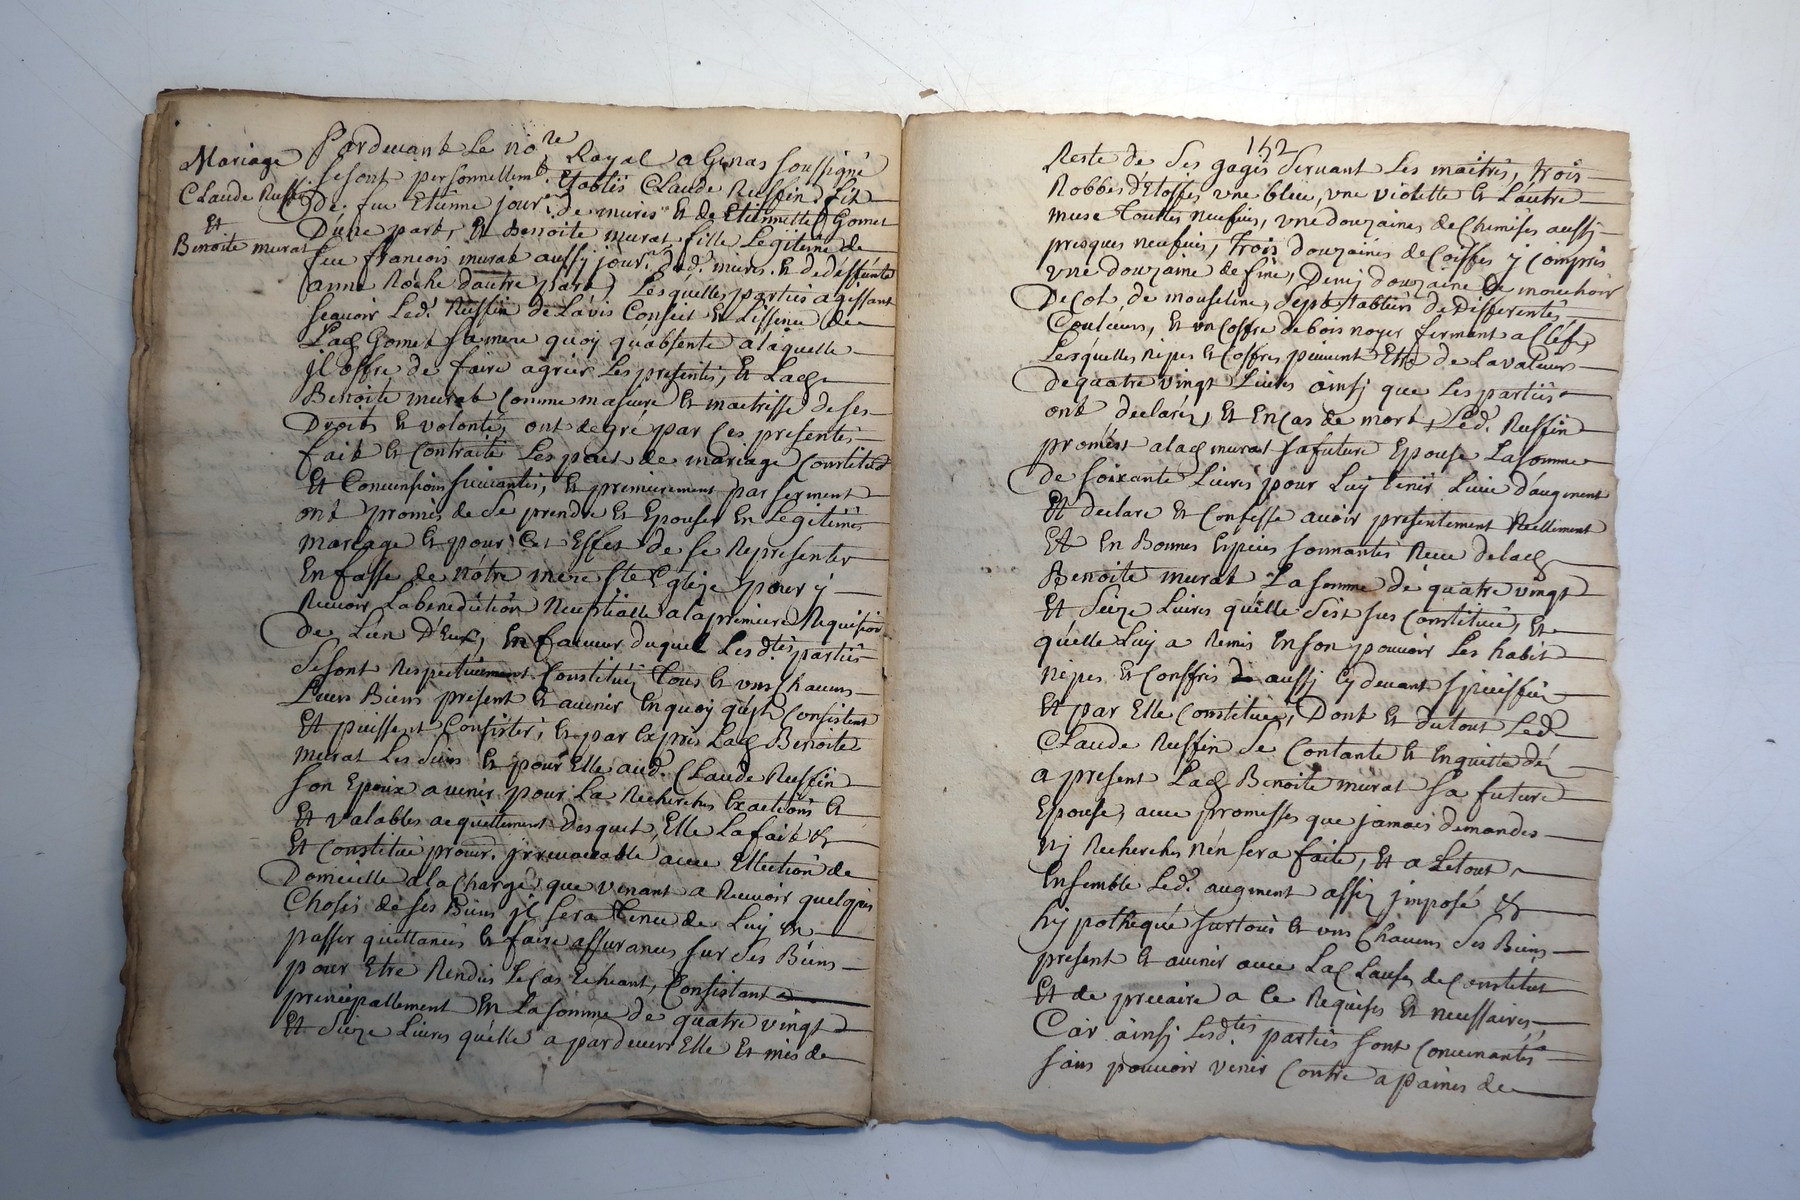 Mariage
Claude Ruffin
Et
Benoite murat
Pardeuant Le no.re Royal a Genas soussigné
se sont personnellem.t Etablis Claude Ruffin fils
De feu Etiènne jour.er de mures Et de Etiennette Gomet
D'une part, Et Benoite murat fille Legitime de
feu francois murat aussy jour.er dud.t mures Et de deffunte
anne Roche d'autre part, Lesquelles parties agissant
scauoir Led.t Ruffin de L'avis Conseil Et Lissence de
Lad Gomet sa mere quoy qu'absente a laquelle
jl offre de faire agréer Les presentes, Et Lad
Benoite murat Comme majeure Et maitresse de ses
Droits Et volonté, ont de gré par Ces presentes
fait Et Contraité Les pact de mariage Constitut
Et Conuensions suiuantes, Et premierement par serment
ont promis de se prendre Et Epouser En Legitime
mariage Et pour Cet Effet de se Representer
En fasse de nôtre mere ste Eglize pour y
Receuoir La benediction Neuptialle a la premiere Requisition
de L'un D'Eux, En faueur duquel Les d.tes parties
se sont Respectiuement Constitué Tous Et vns Chacuns
Leurs Biens present Et auenir En quoy qu'ils Consistent
Et puissent Consister, Et par Expres Lad Benoite
murat Les siens Et pour Elle aud.t Claude Ruffin
son Epoux auenir pour La Recherches Exactions Et
Et valables acquittement Desquel, Elle La fait Et
Et Constitué procur. jrreuocable auec Ellection de
Domicille a la Charge que venant a Receuoir quelques
Choses de ses Biens jl sera Tenu de Luy En
passer quittances Et faire assurances sur ses Biens
pour Etre Rendus Le Cas Echeant, Consistant
principallement En La somme de quatre vingt
Et Seize Liures qu'elle a pardeuers Elle Et mis de
152
Reste de ses gages seruant Les maitres, trois
Robbes d'Etoffes vne bleue, vne violette Et L'autre
muse Toutes neufues, vne douzaines de Chemises aussy
presques neufues, Trois douzaines de Coiffes y Compris
vne douzaine de fine, Demy douzaine De mouchoir
De Col de mouseline, sept tabliers de Differentes
Couleurs, Et vn Coffre de bois noyer fermant a Clefs,
Lesquelles nipes Et Coffres peuuent Etre de La valeur
de quatre vingt Liures ainsy que Les parties
ont declaré, Et En Cas de mort, Led.t Ruffin
promest a lad murat sa future Epouse La somme
de soixante Liures pour Luy tenir Lieu d'augment
Et declare Et Confesse auoir presentement Reellement
Et En Bonnes Especes sonnantes Receu de lad
Benoite murat La somme de quatre vingt
Et Seize Liures qu'elle s'est sus Constituée, Et
qu'elle Luy a Remis En son pouuoir Les habit
nipes Et Coffres aussy Cy deuant speciffié
Et par Elle Constituée, Dont Et du tout Led.t
Claude Ruffin se Contante Et Enquitte dés
a present Lad Benoite murat sa future
Epouse, auec promesses que jamais demandes
ny Recherches n'en sera faite, Et a Le tout
Ensemble Led.t augment assis jmposé Et
hypothequé sur tous Et vns Chacuns ses Biens
present Et auenir auec La Clause de Constitut
Et de precaire a Ce Requises Et necessaires,
Car ainsy Les d.tes parties sont Conuenantes
sans pouuoir venir Contre a paines de